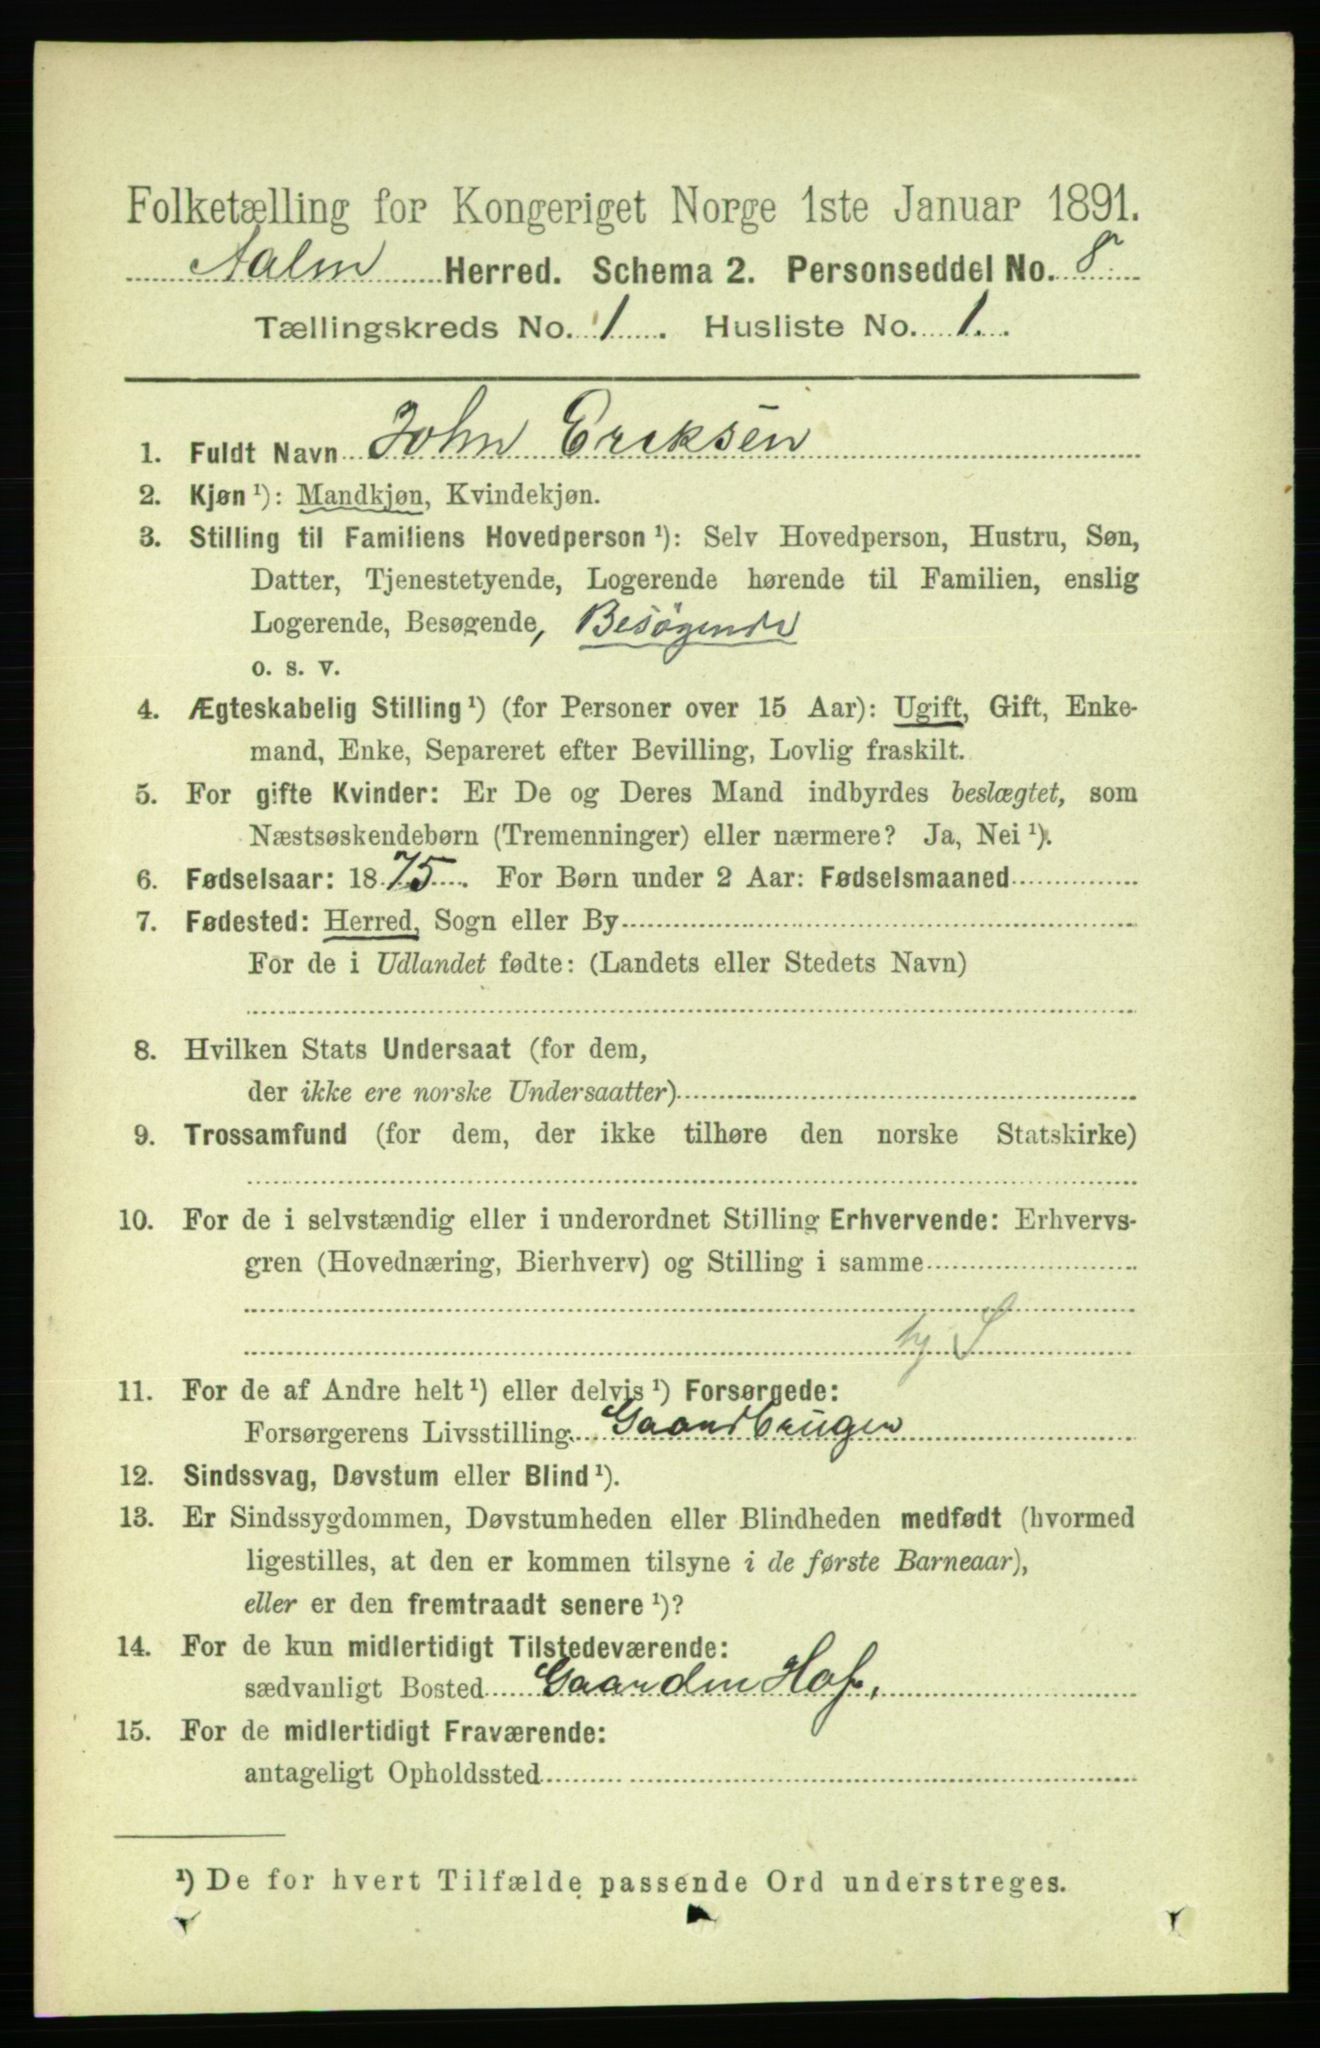 Folketælling for Kongeriget Norge 1ste Januar 1891.
Herred. Schema 2. Personseddel No. 8
Tællingskreds No. 1. Husliste No. 1.
1. Fuldt Navn John Eriksen
2. Kjøn ¹): Mandkjøn, Kvindekjøn.
3. Stilling til Familiens Hovedperson ¹): Selv Hovedperson, Hustru, Søn,
Datter, Tjenestetyende, Logerende hørende til Familien, enslig
Logerende, Besøgende, Besøgende
o. s. v.
4. Ægteskabelig Stilling ¹) (for Personer over 15 Aar): Ugift, Gift, Enke-
mand, Enke, Separeret efter Bevilling, Lovlig fraskilt.
5. For gifte Kvinder: Er De og Deres Mand indbyrdes beslægtet, som
Næstsøskendebørn (Tremenninger) eller nærmere? Ja, Nei ¹).
6. Fødselsaar: 1875. For Børn under 2 Aar: Fødselsmaaned
7. Fødested: Herred, Sogn eller By
For de i Udlandet fødte: (Landets eller Stedets Navn)
8. Hvilken Stats Undersaat (for dem,
der ikke ere norske Undersaatter)
9. Trossamfund (for dem, der ikke tilhøre den norske Statskirke)
10. For de i selvstændig eller i underordnet Stilling Erhvervende: Erhvervs-
gren (Hovednæring, Bierhverv) og Stilling i samme
hj S
11. For de af Andre helt ¹) eller delvis ¹) Forsørgede:
Forsørgerens Livsstilling. Gaardbruger
12. Sindssvag, Døvstum eller Blind ¹).
13. Er Sindssygdommen, Døvstumheden eller Blindheden medfødt (hvormed
ligestilles, at den er kommen tilsyne i de første Barneaar),
eller er den fremtraadt senere ¹)?
14. For de kun midlertidigt Tilstedeværende:
sædvanligt Bosted Gaarden Hof.
15. For de midlertidigt Fraværende:
antageligt Opholdssted
¹) De for hvert Tilfælde passende Ord understreges.